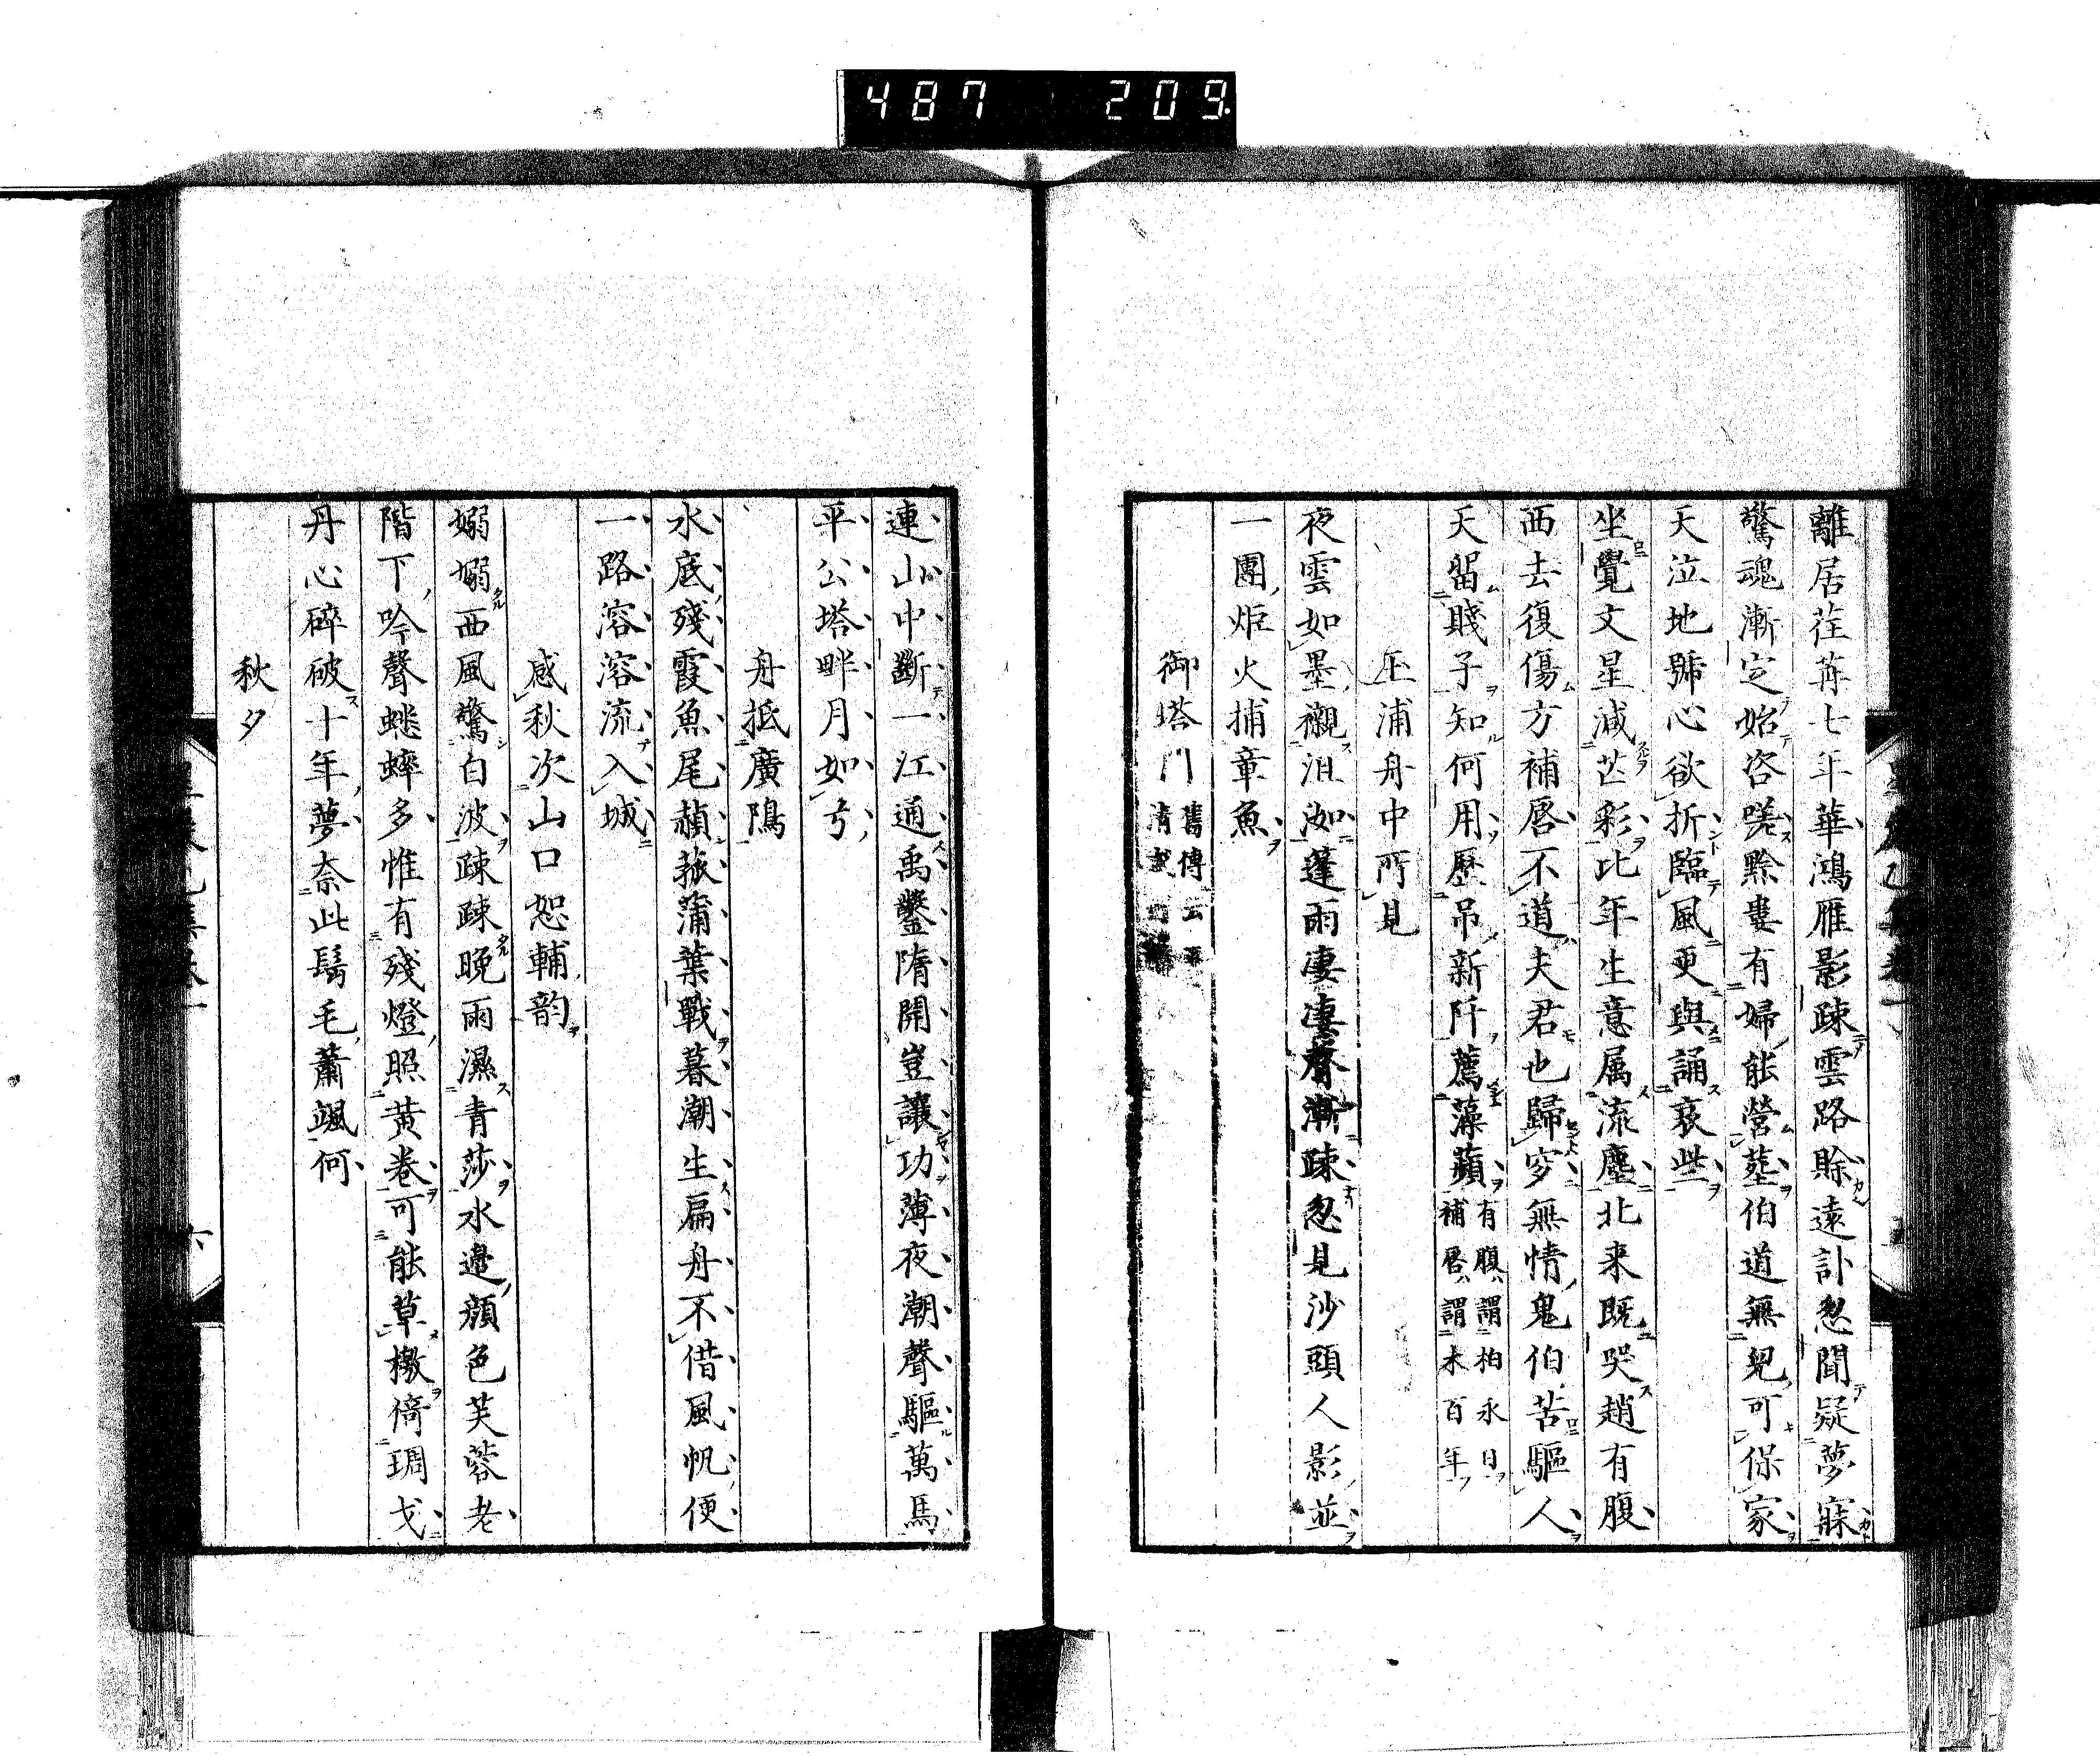 487 209
離居荏苒七年華鴻雁影疎雲路賖遠訃忽聞疑夢寐
驚魂漸定始咨嗟黔婁有婦能營葬伯道無兒可保家
天泣地號心欲折臨風更與誦哀些
坐覺文星減芒彩比年生意属流塵北来既哭趙有腹
西去復傷方補唇不道夫君也歸穸無情鬼伯苦驅人
天留賤子知何用歷吊新阡薦藻蘋有腹謂柏永日
補唇謂木百年
玉浦舟中所見
夜雲如墨襯沮洳蓬雨凄凄聲漸疎忽見沙頭人影並
一團炬火捕章魚
御塔門舊傳云平
清盛
連山中斷一江通禹鑿隋開豈讓功薄夜潮聲驅萬馬
平公塔畔月如弓
舟抵廣陽
水底殘霞魚尾赬菰蒲葉戰暮潮生扁舟不借風帆便
一路溶溶流入城
感秋次山口恕輔韵
嫋嫋西風驚白波疎疎晚雨濕青莎水邊顔色芙蓉老
階下吟聲蟋蟀多惟有殘燈照黄卷可能草檄倚琱戈
丹心碎破十年夢奈此鬂毛蕭颯何
秋夕
六